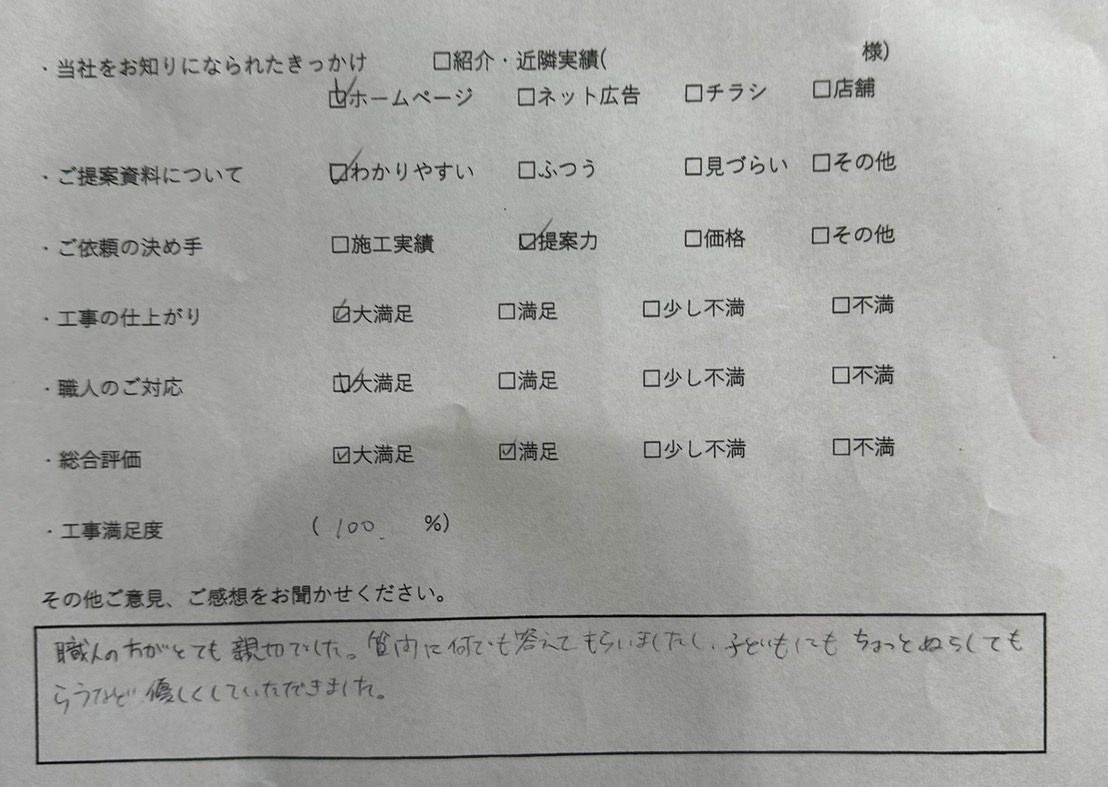 ・当社をお知りになられたきっかけ ☐紹介・近隣実績( 様)
☑ホームページ ☐ネット広告 ☐チラシ ☐店舗
・ご提案資料について ☑わかりやすい ☐ふつう ☐見づらい ☐その他
・ご依頼の決め手 ☐施工実績 ☑提案力 ☐価格 ☐その他
・工事の仕上がり ☑大満足 ☐満足 ☐少し不満 ☐不満
・職人のご対応 ☑大満足 ☐満足 ☐少し不満 ☐不満
・総合評価 ☑大満足 ☑満足 ☐少し不満 ☐不満
・工事満足度 (100. %)
その他ご意見、ご感想をお聞かせください。
職人の方がとても親切でした。質問に何でも答えてもらいましたし、子どもにもちょっとぬらしても
らうなど優しくしていただきました。